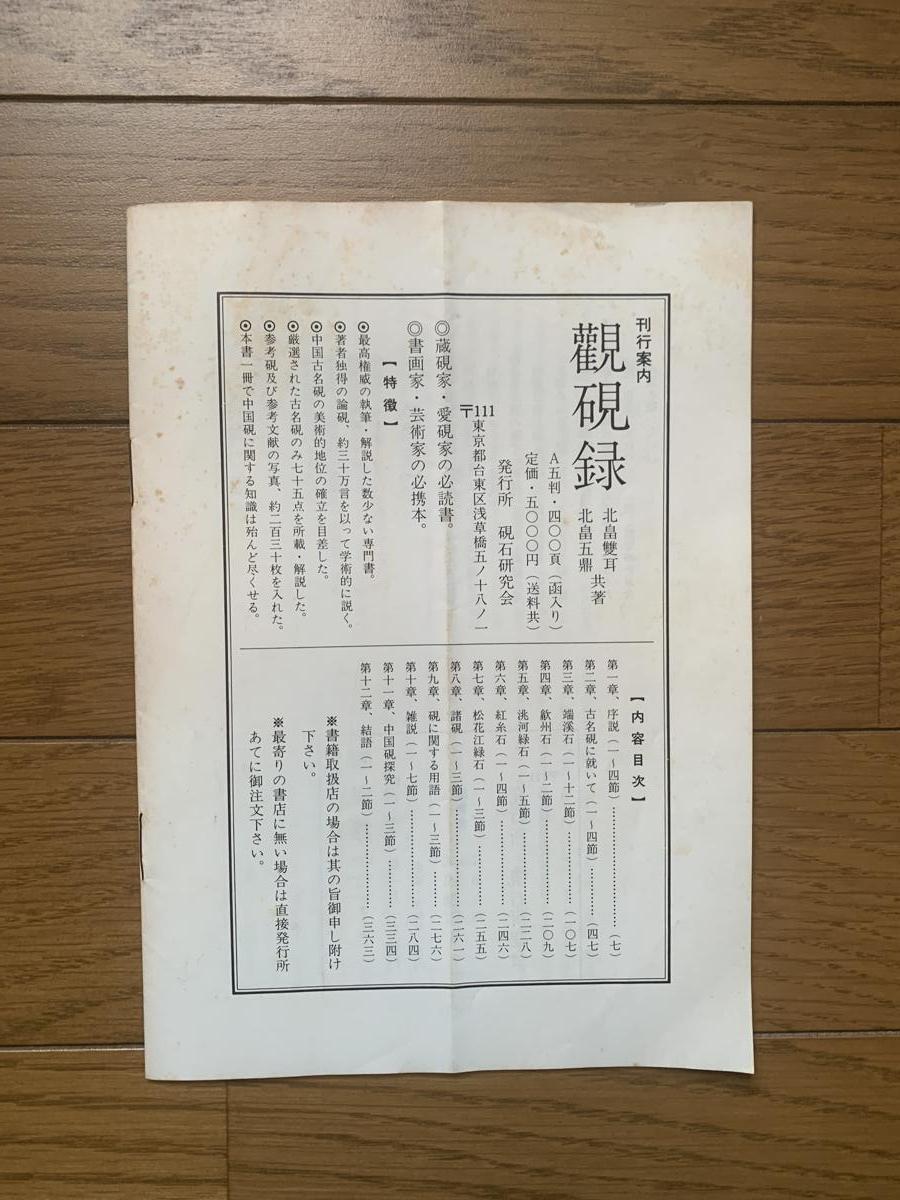 刊行案内
觀硯録
北畠雙耳
北畠五鼎
共著
A五判・四〇〇頁(函入り)
定価・五〇〇〇円(送料共)
発行所 硯石研究会
〒111東京都台東区浅草橋五ノ十八ノ一
◎蔵硯家・愛硯家の必読書。
◎書画家・芸術家の必携本。
【特徴】
⦿最高権威の執筆・解説した数少ない専門書。
⦿著者独得の論硯、約三十万言を以って学術的に説く。
⦿中国古名硯の美術的地位の確立を目差した。
⦿厳選された古名硯のみ七十五点を所載・解説した。
⦿参考硯及び参考文献の写真、約二百三十枚を入れた。
⦿本書一冊で中国硯に関する知識は殆んど尽くせる。
【内容目次】
第一章、序説(一〜四節)…………………(七)
第二章、古名硯に就いて(一〜四節)………(四七)
第三章、端溪石(一〜十二節)……………(一〇七)
第四章、歙州石(一〜二節)………………(二〇九)
第五章、洮河緑石(一〜五節)……………(二二八)
第六章、紅糸石(一〜四節)………………(二四六)
第七章、松花江緑石(一〜三節)…………(二五五)
第八章、諸硯(一〜三節)…………………(二六一)
第九章、硯に関する用語(一〜三節)………(二七六)
第十章、雑説(一〜七節)…………………(二八四)
第十一章、中国硯探究(一〜三節)………(三三四)
第十二章、結語(一〜二節)………………(三六三)
※書籍取扱店の場合は其の旨御申し附け
下さい。
※最寄りの書店に無い場合は直接発行所
あてに御注文下さい。